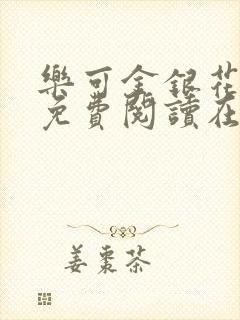 樂可金銀花
免費閱讀在
姜棗茶